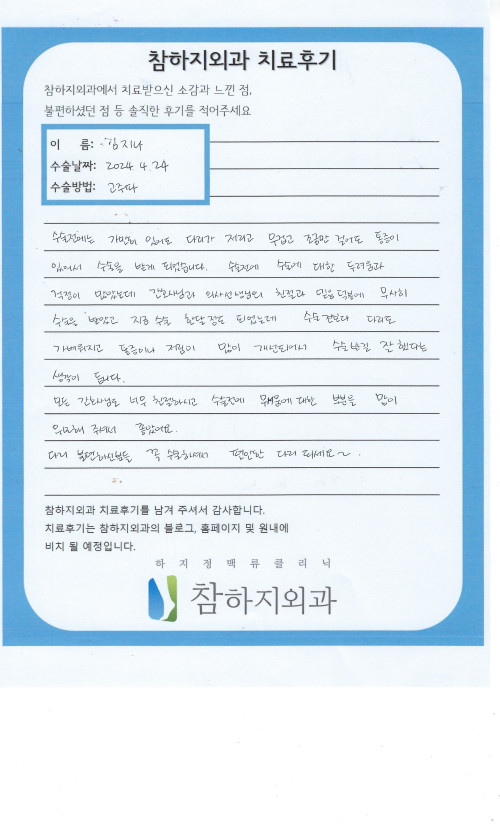 참하지외과 치료후기
참하지외과에서 치료받으신 소감과 느낀 점,
불편하셨던 점 등 솔직한 후기를 적어주세요
이 름: 김지나
수술날짜: 2024 4. 24
수술방법: 고주파
수술전에는 가만히 있어도 다리가 저리고 무겁고 조금만 걸어도 통증이
있어서 수술을 받게 되었습니다. 수술전에 수술에 대한 두려움과
걱정이 많았는데 간호사님과 의사선생님의 친절과 믿음 덕분에 무사히
수술을 받았고 지금 수술 한달 정도 되었는데 수술 전보다 다리도
가벼워지고 통증이나 저림이 많이 개선되어서 수술 받길 잘 했다는
생각이 듭니다.
모든 간호사님들 너무 친절하시고 수술전에 무서움에 대한 부분을 많이
위로해 주셔서 좋았어요.
다리 불편하신분들 꼭 수술하셔서 편안한 다리 되세요~.
참하지외과 치료후기를 남겨 주셔서 감사합니다.
치료후기는 참하지외과의 블로그, 홈페이지 및 원내에
비치 될 예정입니다.
하지정맥류클리닉
참하지외과